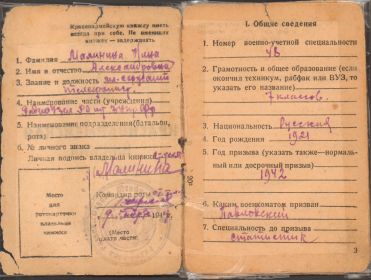 Красноармейскую книжку иметь
всегда при себе. Не имеющих
книжек — задерживать
1. Фамилия Малинина Нина
2. Имя и отчество Александровна
3. Звание и должность
телефонист
4. Наименование части (учреждения)
5. Наименование подразделения (батальон,
рота)
6. № личного знака
Личная подпись владельца книжки
Место
для
фотокарточки
владельца
книжки
Командир роты
194
(Место
печати части)
I. Общие сведения
1. Номер военно-учетной специальности
2. Грамотность и общее образование (если
окончил техникум, рабфак или ВУЗ, то
указать его название)
7 классов.
3. Национальность Русская
4. Год рождения 1921
5. Год призыва (указать также—нормаль-
ный или досрочный призыв)
1942
6. Каким военкоматом призван
Павловский
7. Специальность до призыва
статистик
3